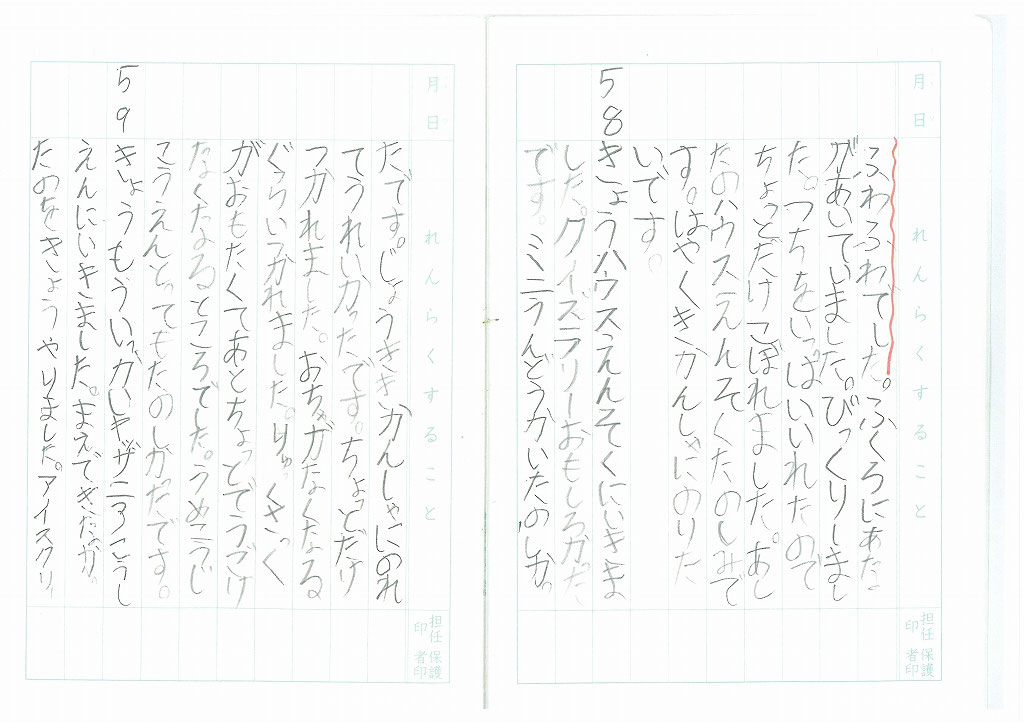 月 日
れんらくすること
担任印
保護者印
ふわふわでした。ふくろにあな
があいていました。びっくりしまし
た。つちをいっぱいいれたので
ちょっとだけこぼれました。あし
たのハウスえんそくたのしみで
す。はやくきかんしゃにのりた
いです。
58
きょうハウスえんそくにいきま
した。クイズラリーおもしろかった
です。ミニうんどうかいたのしかっ
月 日
れんらくすること
担任印
保護者印
たです。じょうききかんしゃにのれ
てうれいかったです。ちょっとだけ
つかれました。おちゃがなくなる
ぐらいつかれました。りゅっくさっく
がおもたくてあとちょっとでうごけ
なくなるところでした。うめこうじ
こうえんとってもたのしかったです。
59
きょうもういっかいキザニアこうし
えんにいきました。まえできだ
たのをきょうやりました。アイスクリ